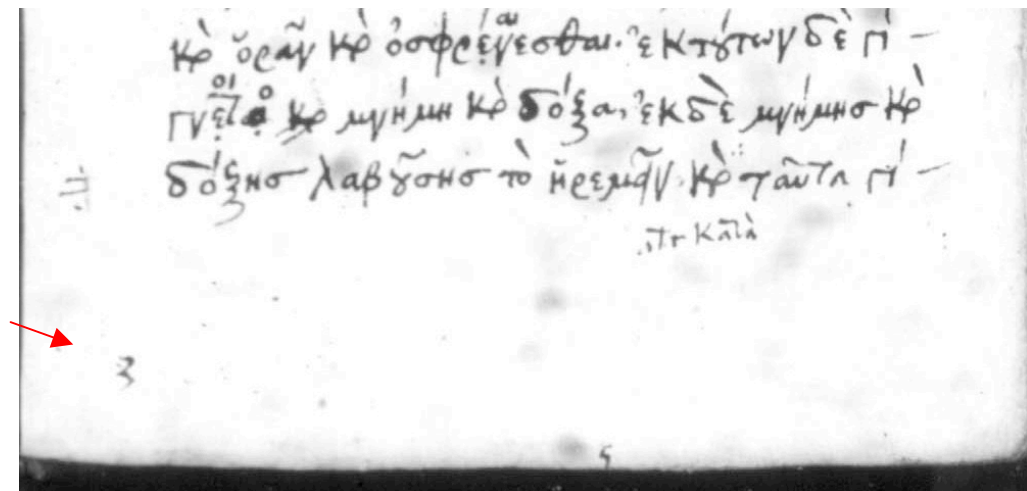 κὶ ὁρᾶν κὶ ὀσφρένεσθαι. ἐκ τούτων δὲ γί-
κὶ μνήμη κὶ δόξα, ἐκ δὲ μνήμησ κὶ
δόξησ λαβούσησ τὸ ἠρεμεῖν. κὶ ταῦτα γί-
κατὰ